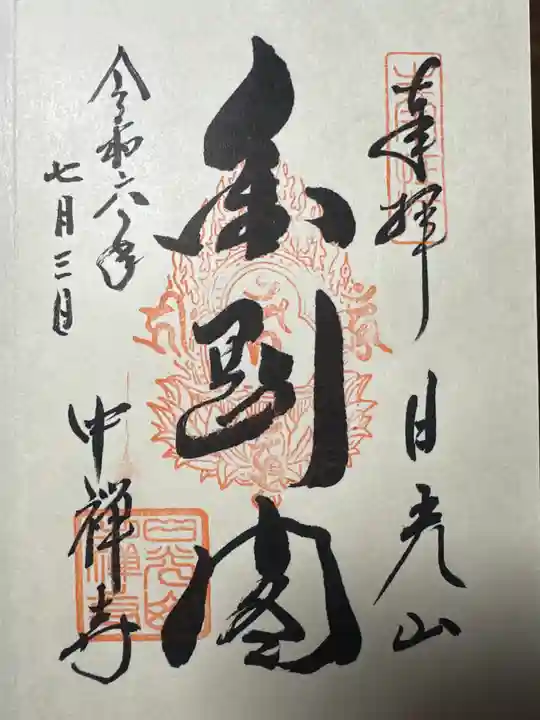 奉拝
日光山
金剛閣
令和六年
七月三日
中禅寺